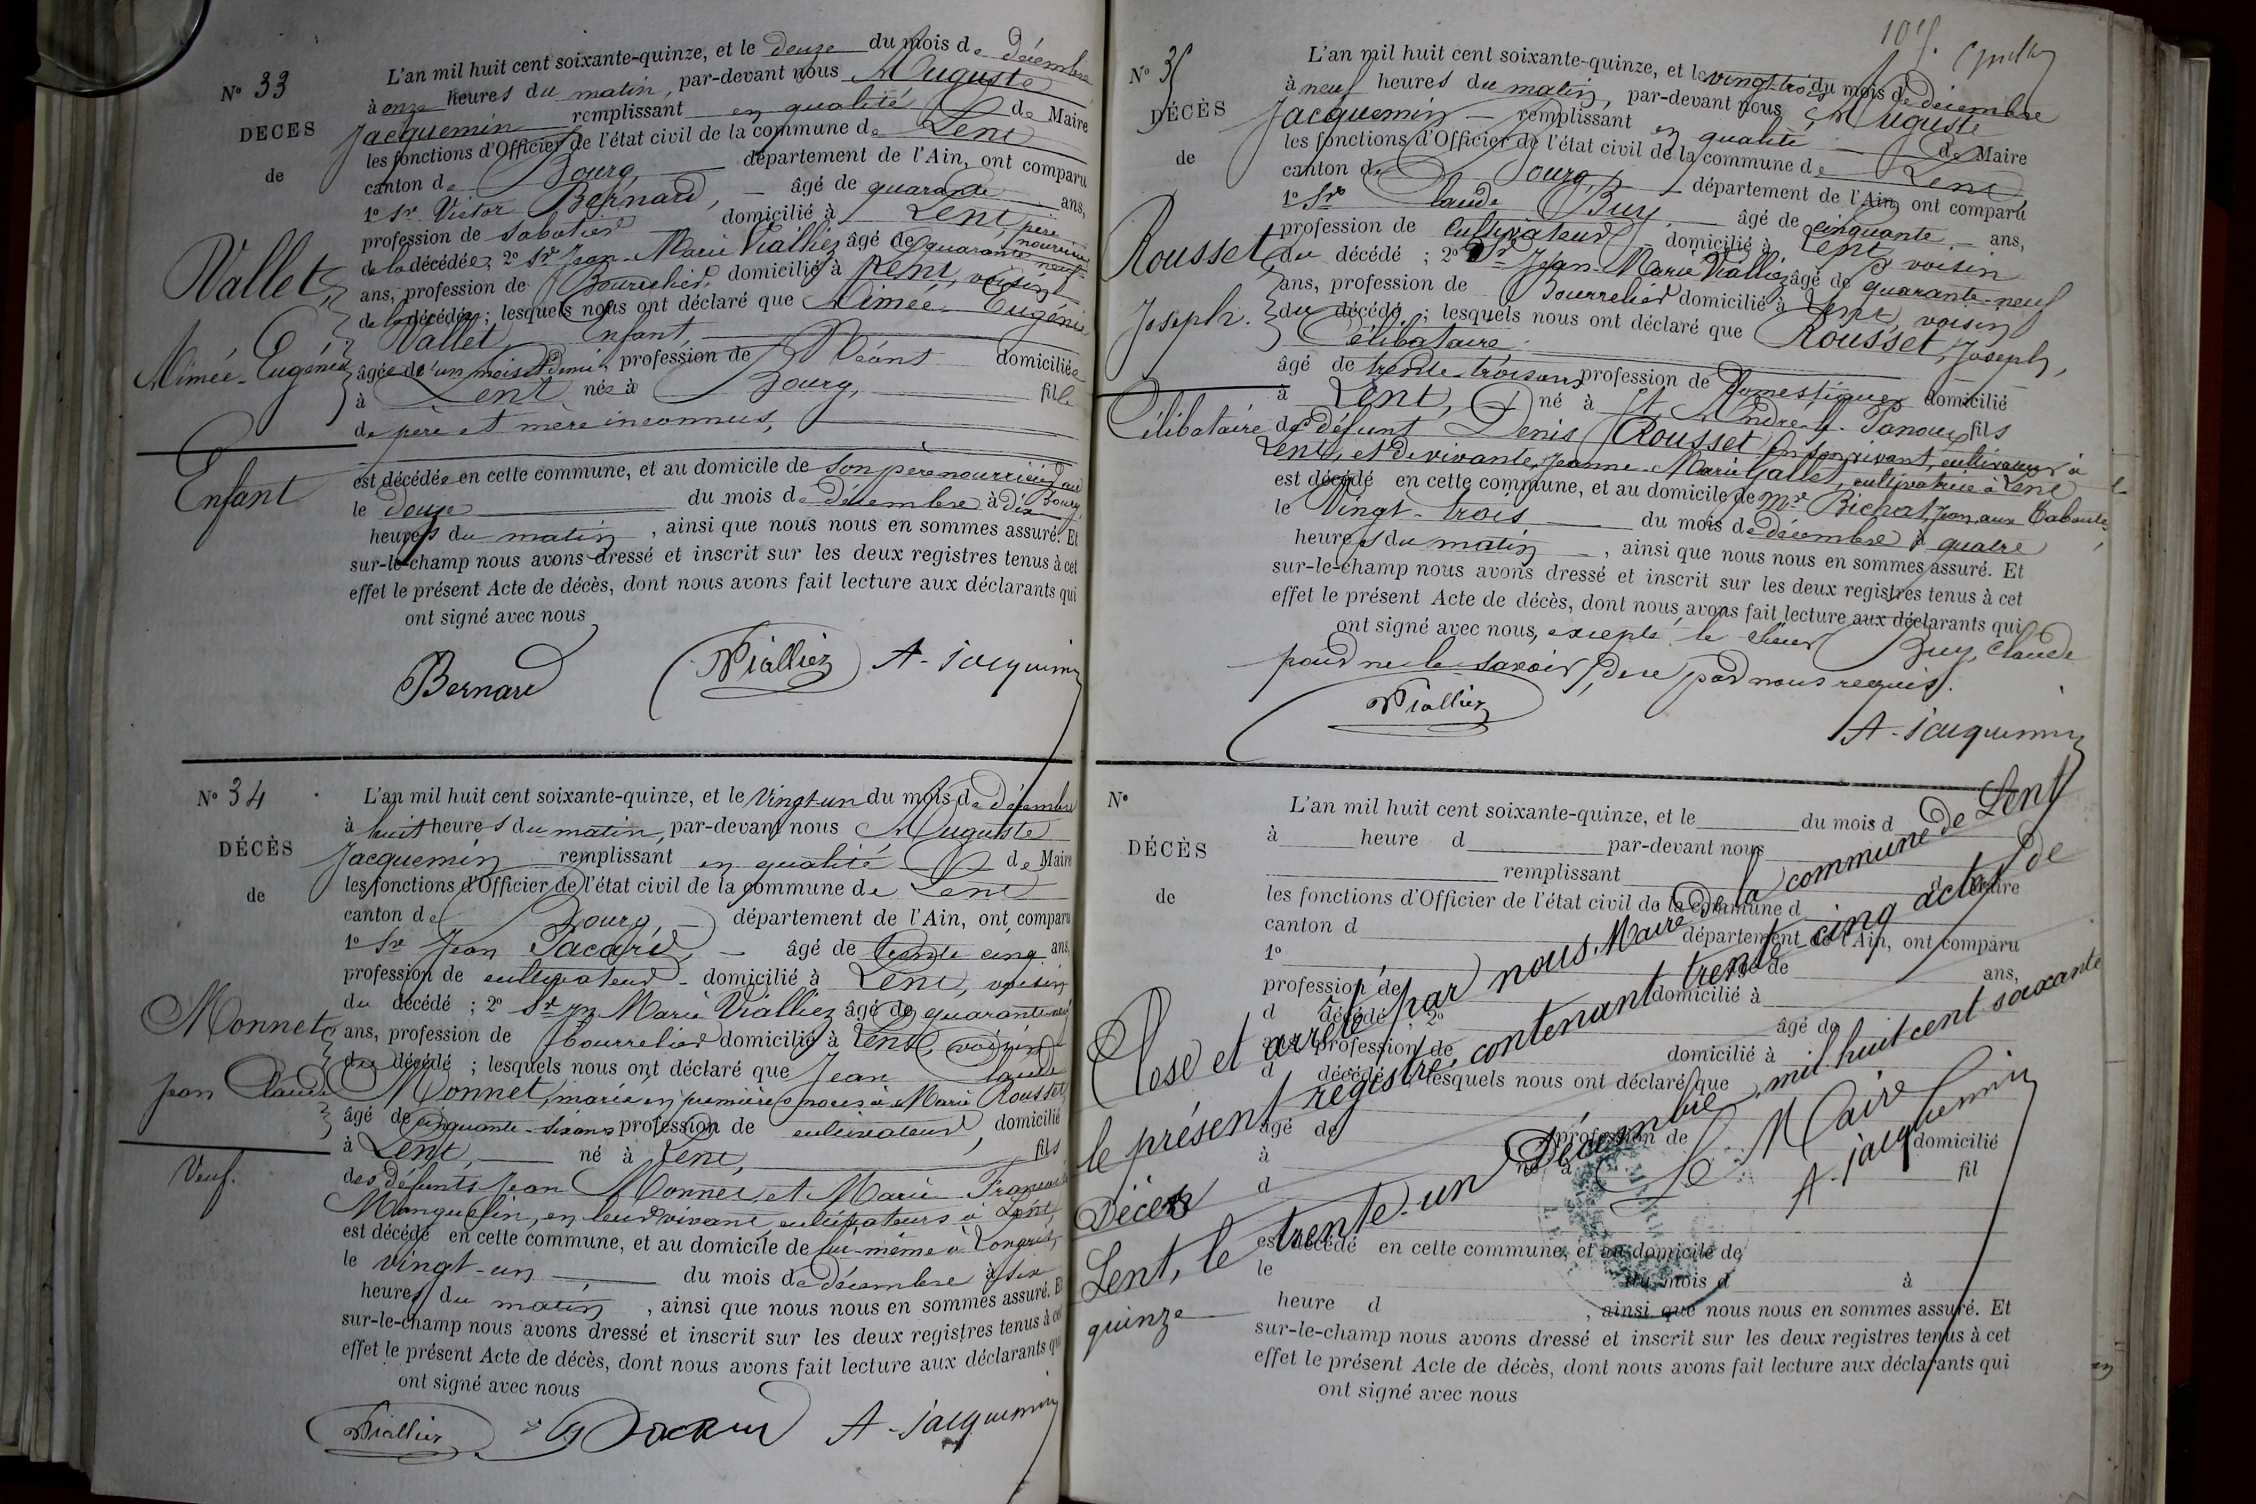 N° 33
DÉCÈS
de
Vallet,
Aimée-Eugénie
Enfant
L'an mil huit cent soixante-quinze, et le douze du mois de décembre
à onze heures du matin, par-devant nous Auguste
Jacquemin remplissant en qualité de Maire
les fonctions d'Officier de l'état civil de la commune de Lent
canton de Bourg, département de l'Ain, ont comparu
1° Sr Victor Bernard, âgé de quarante ans,
profession de sabotier domicilié à Lent, père nourricier
de la décédée; 2° Sr Jean-Marie Vialliez âgé de quarante-neuf
ans, profession de Bourrelier, domicilié à Lent, voisin
de la décédée; lesquels nous ont déclaré que Aimée-Eugénie
Vallet, Enfant,
âgée de un mois et demi profession de Néant domiciliée
à Lent née à Bourg, fille
de père et mère inconnus,
est décédée en cette commune, et au domicile de son père nourricier au Bourg,
le douze du mois de décembre à dix
heures du matin, ainsi que nous nous en sommes assuré. Et
sur-le-champ nous avons dressé et inscrit sur les deux registres tenus à cet
effet le présent Acte de décès, dont nous avons fait lecture aux déclarants qui
ont signé avec nous
Bernard Vialliez A. Jacquemin
N° 34
DÉCÈS
de
Monnet
Jean Claude
Veuf.
L'an mil huit cent soixante-quinze, et le vingt-un du mois de décembre
à huit heures du matin, par-devant nous Auguste
Jacquemin remplissant en qualité de Maire
les fonctions d'Officier de l'état civil de la commune de Lent
canton de Bourg, département de l'Ain, ont comparu
1° Sr Jean Pacard, âgé de trente cinq ans,
profession de cultivateur domicilié à Lent, voisin
du décédé; 2° Sr Jn Marie Vialliez âgé de quarante-neuf
ans, profession de bourrelier domicilié à Lent, voisin
du décédé; lesquels nous ont déclaré que Jean Claude
Monnet, marié en premières noces à Marie Rousset
âgé de cinquante-six ans profession de cultivateur, domicilié
à Lent, né à Lent, fils
des défunts Jean Monnet et Marie Françoise
Manguelin, en leur vivant cultivateurs à Lent,
est décédé en cette commune, et au domicile de lui-même à Longris,
le vingt-un du mois de décembre à six
heures du matin, ainsi que nous nous en sommes assuré. Et
sur-le-champ nous avons dressé et inscrit sur les deux registres tenus à cet
effet le présent Acte de décès, dont nous avons fait lecture aux déclarants qui
ont signé avec nous
Vialliez Pacard A. Jacquemin
N° 35
DÉCÈS
de
Rousset,
Joseph.
Célibataire
L'an mil huit cent soixante-quinze, et le vingt-trois du mois de décembre
à neuf heures du matin, par-devant nous Auguste
Jacquemin remplissant en qualité de Maire
les fonctions d'Officier de l'état civil de la commune de Lent
canton de Bourg, département de l'Ain, ont comparu
1° Sr Claude Buy, âgé de cinquante ans,
profession de cultivateur domicilié à Lent, voisin
du décédé; 2° Sr Jean-Marie Vialliez âgé de quarante-neuf
ans, profession de Bourrelier domicilié à Lent, voisin
du décédé; lesquels nous ont déclaré que Rousset, Joseph,
Célibataire
âgé de trente-trois ans profession de Domestique domicilié
à Lent, né à St André-le-Panoux fils
de défunt Denis Rousset en son vivant, cultivateur à
Lent, et de vivante, Jeanne-Marie Gallet, cultivatrice à Lent
est décédé en cette commune, et au domicile de Mr Bichat, Jean, aux
le vingt-trois du mois de décembre à quatre
heures du matin, ainsi que nous nous en sommes assuré. Et
sur-le-champ nous avons dressé et inscrit sur les deux registres tenus à cet
effet le présent Acte de décès, dont nous avons fait lecture aux déclarants qui
ont signé avec nous, excepté le sieur Buy, Claude
pour ne le savoir, de ce par nous requis.
Vialliez A. Jacquemin
N°
DÉCÈS
de
L'an mil huit cent soixante-quinze, et le du mois d
à heure d par-devant nous
remplissant d Maire
les fonctions d'Officier de l'état civil de la commune d
canton d département de l'Ain, ont comparu
1° âgé de ans,
profession de domicilié à
d décédé; 2° âgé de
ans, profession de domicilié à
d décédé; lesquels nous ont déclaré que
âgé de profession de domicilié
à né à fil
d
est décédé en cette commune, et au domicile de
le du mois d à
heure d , ainsi que nous nous en sommes assuré. Et
sur-le-champ nous avons dressé et inscrit sur les deux registres tenus à cet
effet le présent Acte de décès, dont nous avons fait lecture aux déclarants qui
ont signé avec nous
Close et arrêté par nous Maire de la commune de Lent
le présent registre, contenant trente-cinq actes de
Décès
Lent, le trente-un Décembre, mil huit cent soixante
quinze
Le Maire
A. Jacquemin